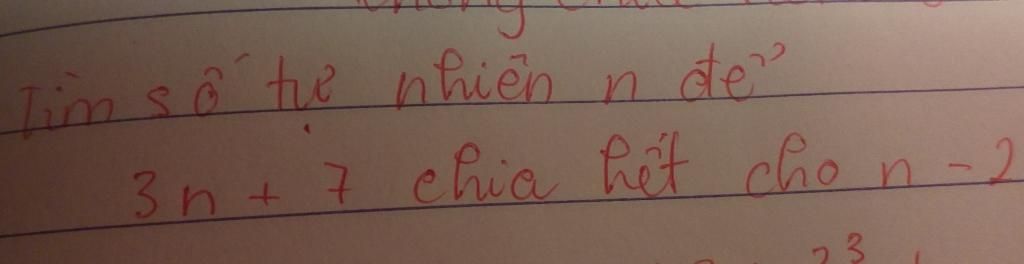 Tìm số tự nhiên n để
3n + 7 chia hết cho n - 2